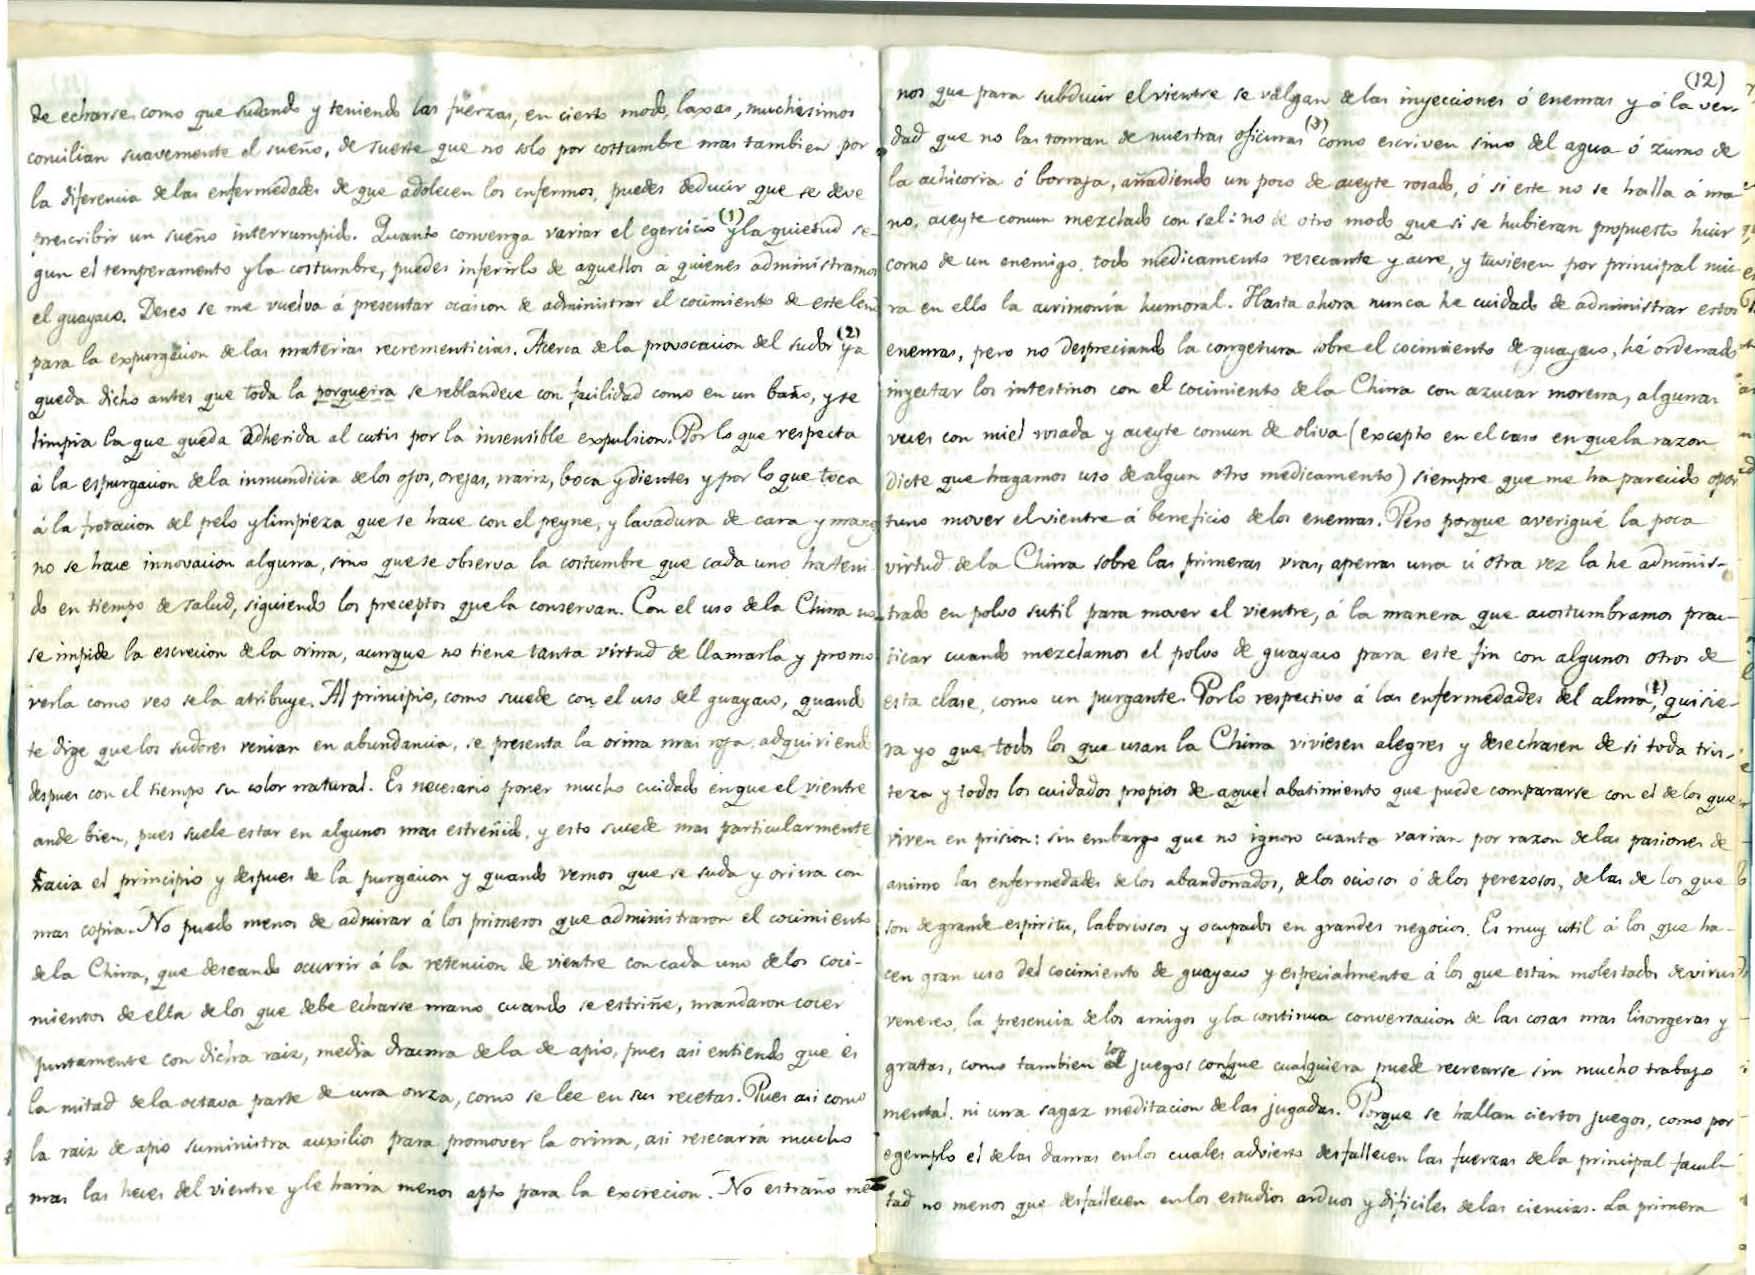 de echarse, como que sudando y teniendo las fuerzas, en cierto modo, laxas, muchisimos
concilian suavemente el sueño, de suerte que no solo por costumbre mas tambien por
la diferencia de las enfermedades de que adolecen los enfermos, puedes deducir que se deve
prescribir un sueño interrumpido. Quanto convenga variar el egercicio (1) y la quietud se-
gun el temperamento y la costumbre, puedes inferirlo de aquellos á quienes administramos
el guayaco. Deseo se me vuelva á presentar ocasion de administrar el cocimiento de este leño
para la expurgacion de las materias recrementicias. Acerca de la provocacion del sudor (2) ya
queda dicho antes que toda la porqueira se reblandece con facilidad como en un baño, y se
limpia la que queda adherida al cutis por la insensible expulsion. Por lo que respecta
á la espurgacion de la inmundicia de los ojos, orejas, nariz, boca y dientes y por lo que toca
á la frotacion del pelo y limpieza que se hace con el peyne, y lavadura de cara y manos
no se hace innovacion alguna, sino que se observa la costumbre que cada uno ha teni-
do en tiempo de salud, siguiendo los preceptos que la conservan. Con el uso de la China no
se impide la escrecion de la orina, aunque no tiene tanta virtud de llamarla y promo
verla como veo se la atribuye. Al principio, como sucede con el uso del guayaco, quando
te dige que los sudores venian en abundancia, se presenta la orina mas roja, adquiriendo
despues con el tiempo su color natural. Es necesario poner mucho cuidado en que el vientre
ande bien, pues suele estar en algunos mas estreñido, y esto sucede mas particularmente
hacia el principio y despues de la purgacion y quando vemos que se suda y orina con
mas copia. No puedo menos de admirar á los primeros que administraron el cocimiento
de la China, que deseando ocurrir á la retencion de vientre con cada uno de los coci-
mientos de ella de los que debe echarse mano cuando se estriñe, mandaron cocer
juntamente con dicha raiz, media dracma de la de apio, pues asi entiendo que es
la mitad de la octava parte de una onza, como se lee en sus recetas. Pues asi como
la raiz de apio suministra auxilios para promover la orina, asi resecaria mucho
mas las heces del vientre y le haria menos apto para la excrecion. No estraño me-
(12)
nos que para subducir el vientre se valgan de las inyecciones ó enemas y á la ver-
dad que no las toman de nuestras oficinas (3) como escriven sino del agua ó zumo de
la achicoria ó borraja, añadiendo un poco de aceyte rosado, ó si este no se halla á ma
no, aceyte comun mezclado con sal: no de otro modo que si se hubieran propuesto huir
como de un enemigo, todo medicamento resecante y acre, y tuviesen por principal mi-
ra en ello la acrimonía humoral. Hasta ahora nunca he cuidado de administrar estos
enemas, pero no despreciando la congetura sobre el cocimiento de guayaco, hé ordenado
inyectar los intestinos con el cocimiento de la China con azucar morena, algunas
veces con miel rosada y aceyte comun de oliva (excepto en el caso en que la razon
dicte que hagamos uso de algun otro medicamento) siempre que me ha parecido opor
tuno mover el vientre á beneficio de los enemas. Pero porque averigué la poca
virtud de la China sobre las primeras vias, apenas una ú otra vez la he adminis-
trado en polvo sutil para mover el vientre, á la manera que acostumbramos prac-
ticar cuando mezclamos el polvo de guayaco para este fin con algunos otros de
esta clase, como un purgante. Por lo respectivo á las enfermedades del alma (1), quisie-
ra yo que todos los que usan la China viviesen alegres y desechasen de si toda tris-
teza y todos los cuidados propios de aquel abatimiento que puede compararse con el de los que
viven en prision: sin embargo que no ignoro cuanto varian por razon de las pasiones de
animo las enfermedades de los abandonados, de los ociosos ó de los perezosos, de las de los que
son de grande espiritu, laboriosos y ocupados en grandes negocios. Es muy util á los que ha-
cen gran uso del cocimiento de guayaco y especialmente á los que están molestados de virus
venereo, la presencia de los amigos y la continua conversacion de las cosas mas lisongeras y
gratas, como tambien los juegos con que cualquiera puede recrearse sin mucho trabajo
mental, ni una sagaz meditacion de las jugadas. Porque se hallan ciertos juegos, como por
egemplo el de las damas en los cuales advierto desfallecen las fuerzas de la principal facul-
tad no menos que desfallecen en los estudios arduos y dificiles de las ciencias. La primera